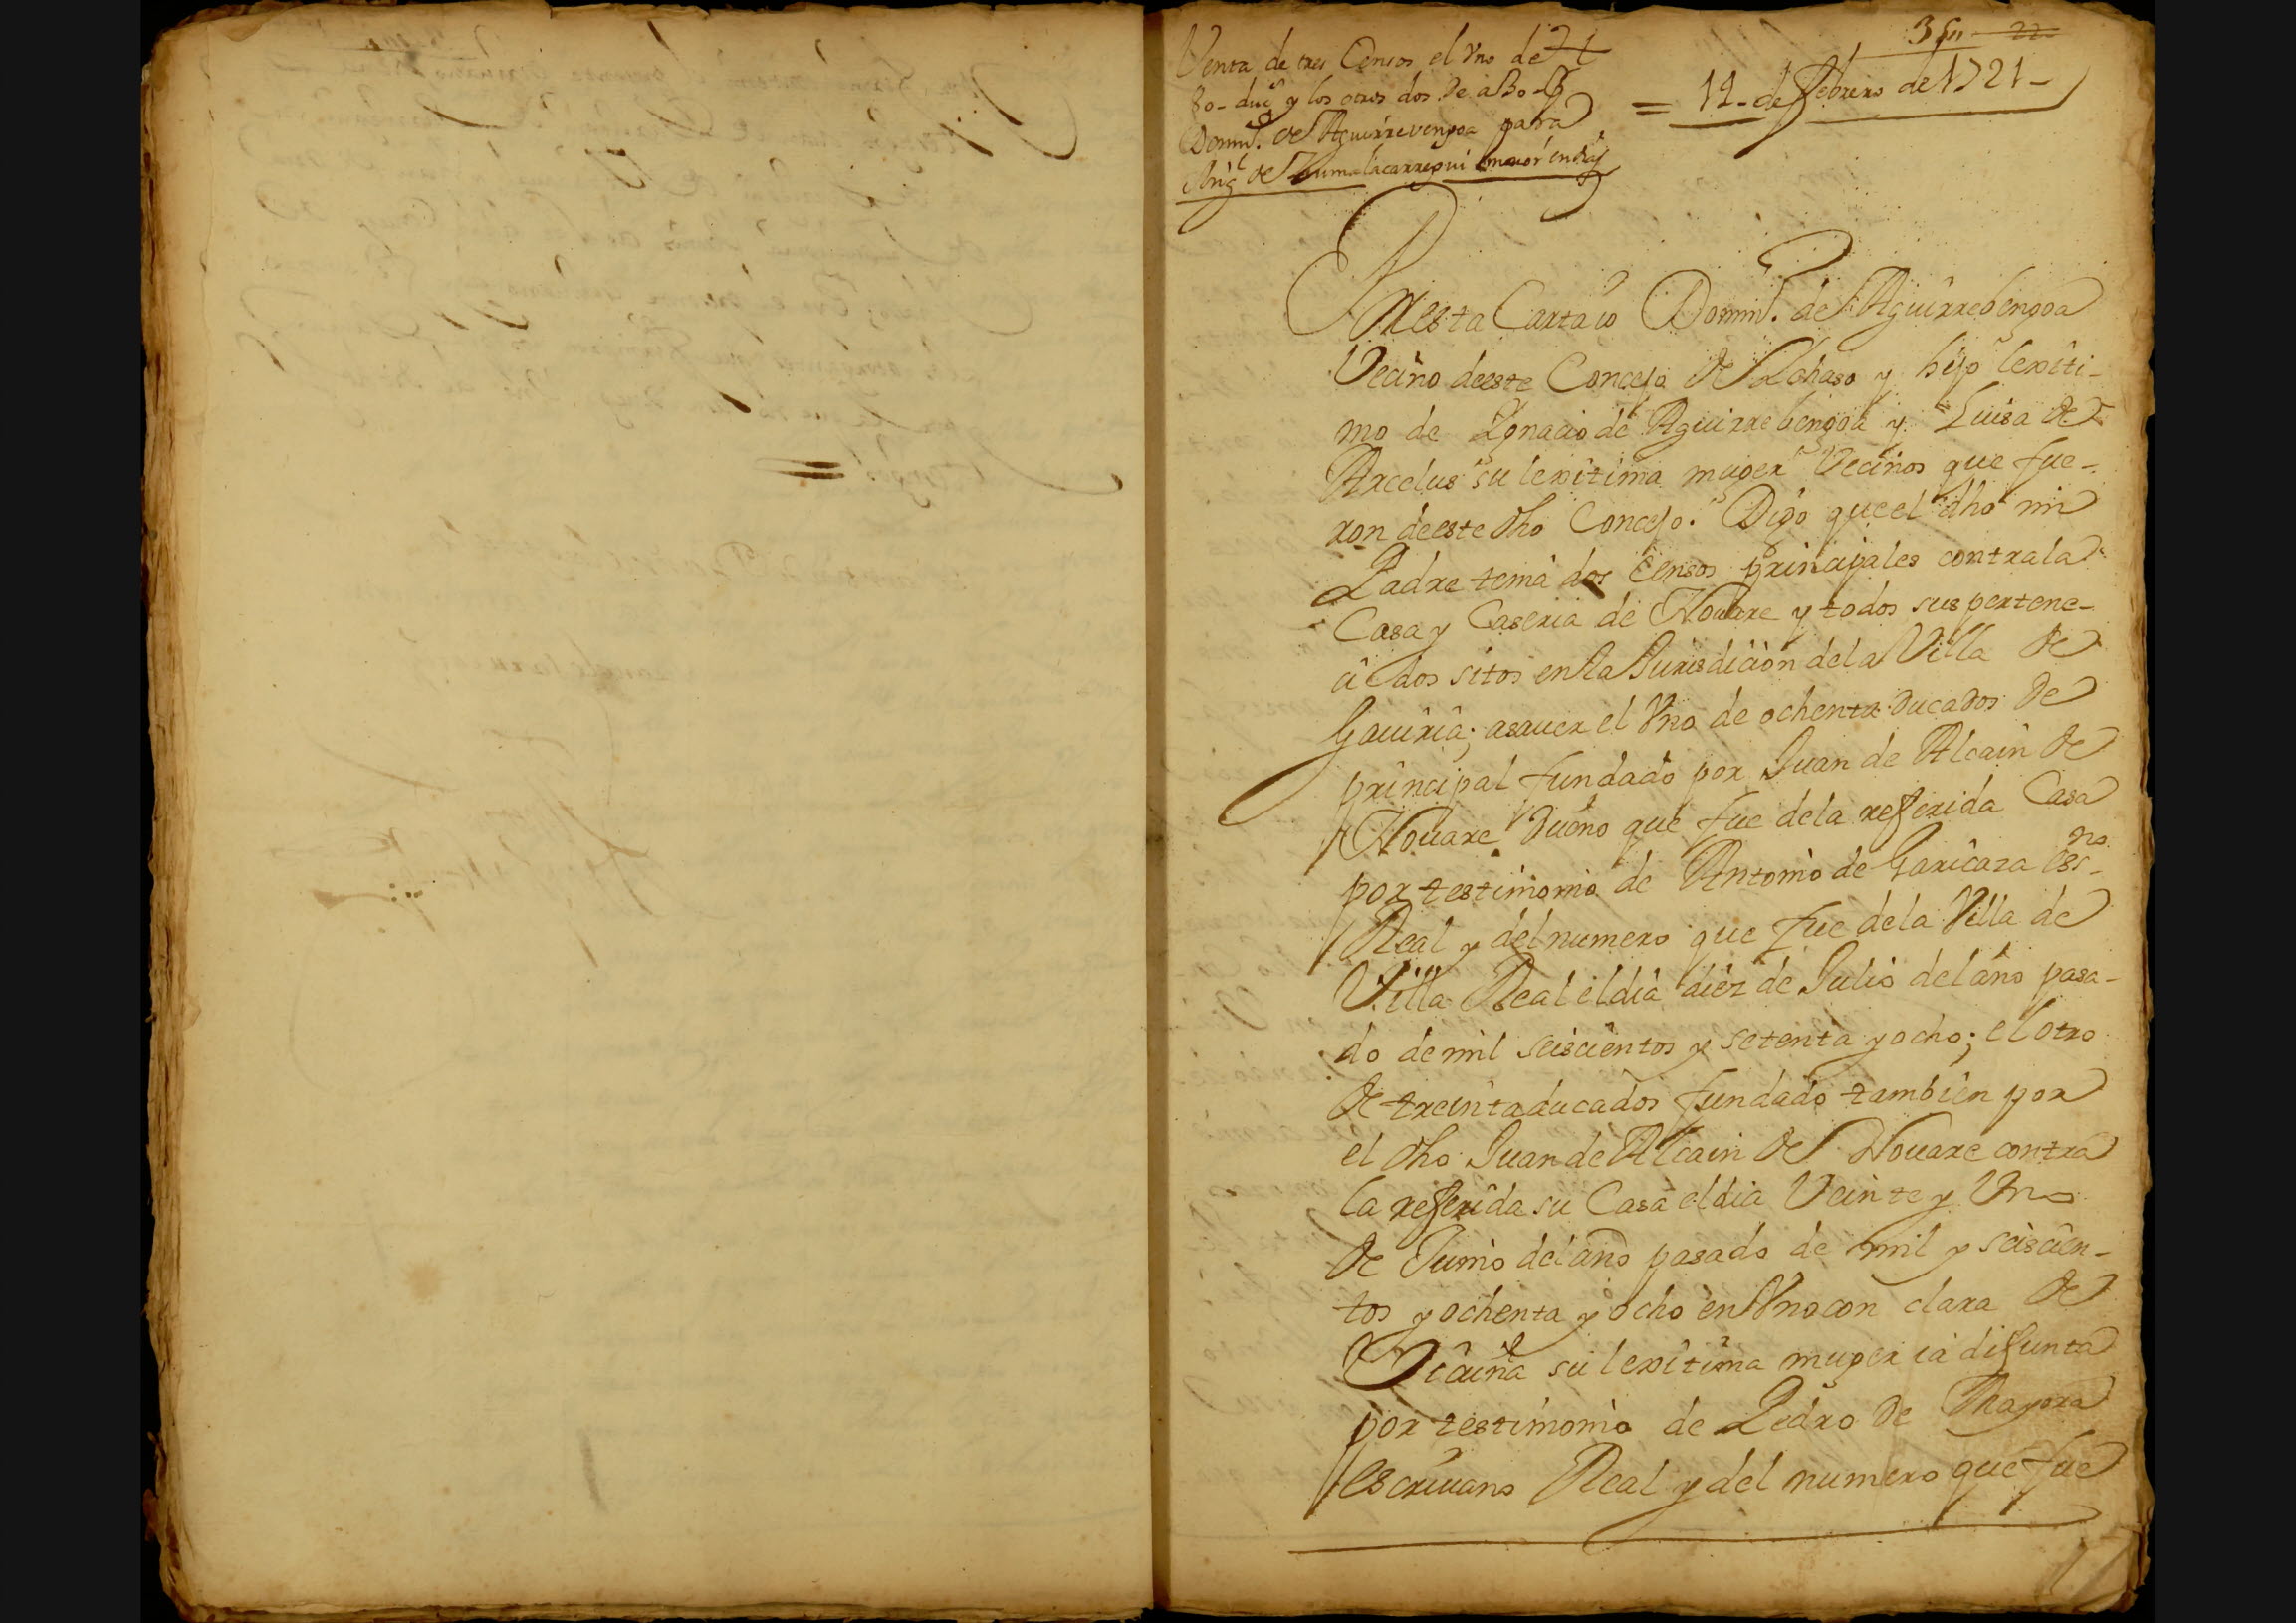 Venta de tres Censos el Vno de
80- duc.s y los otros dos de a 30-
Domin.o de Aguirrevengoa para
Ang.l de Zumalacarregui menor en dias
35 22
= 11- de febrero de 1721-
En esta Carta io Domin.o de Aguirrebengoa
Vecino deeste Concejo de Ichaso y hijo lexiti-
mo de Ygnacio de Aguirrebengoa y Luisa de
Arcelus su lexitima muger Vecinos que fue-
ron deeste dho Concejo. Digo queel dho mi
Padre tenia dos Censos principales contrala
Casa y Caseria de Nouare y todos sus pertene-
cidos sitos en la Jurisdicion dela Villa de
Gauiria; asauer el Vno de ochenta Ducados de
principal fundado por Juan de Alcain de
Nouare Dueño que fue dela referida Casa
por testimonio de Antonio de Garicaza Ess.no
Real y del numero que fue dela Villa de
Villa Real el dia diez de Julio del año pasa-
do de mil seiscientos y setenta y ocho; el otro
de treinta ducados fundado tambien por
el dho Juan de Alcain de Nouare contra
la referida su Casa el dia Veinte y Vno
de Junio del año pasado de mil y seiscien-
tos y ochenta y ocho en Vno con clara de
Vicuña su lexitima muger ia difunta
por testimonio de Pedro de Mayora
escriuano Real y del numero que fue